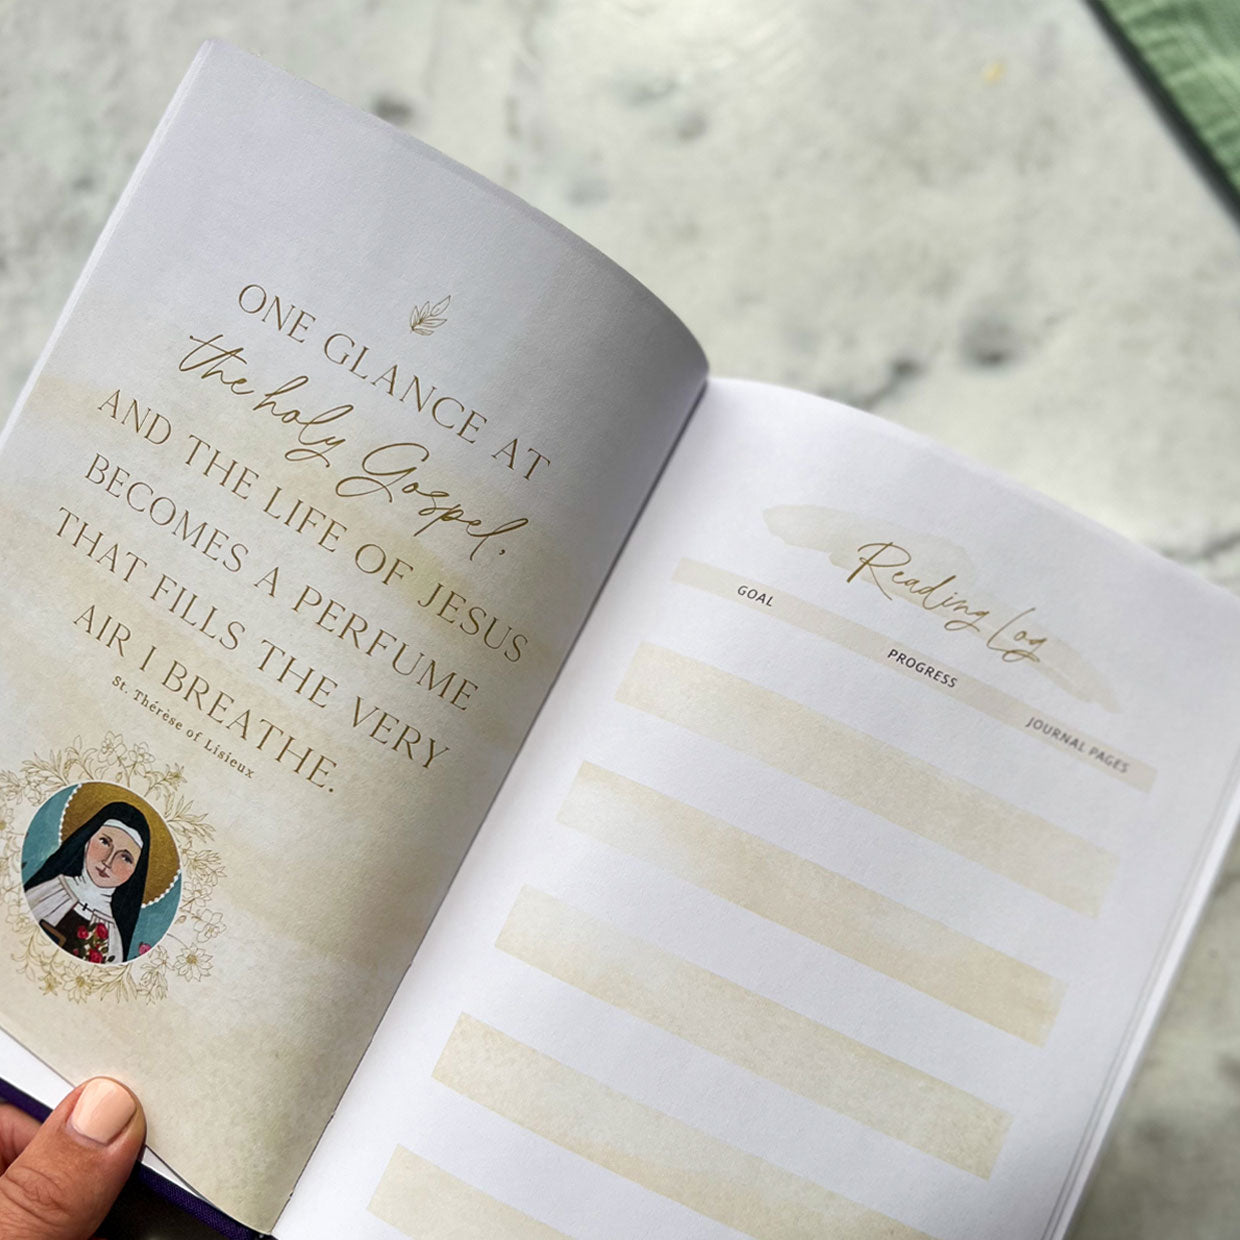 ONE GLANCE AT
the holy Gospel,
AND THE LIFE OF JESUS
BECOMES A PERFUME
THAT FILLS THE VERY
AIR I BREATHE.
St. Thérèse of Lisieux
Reading Log
GOAL PROGRESS JOURNAL PAGES